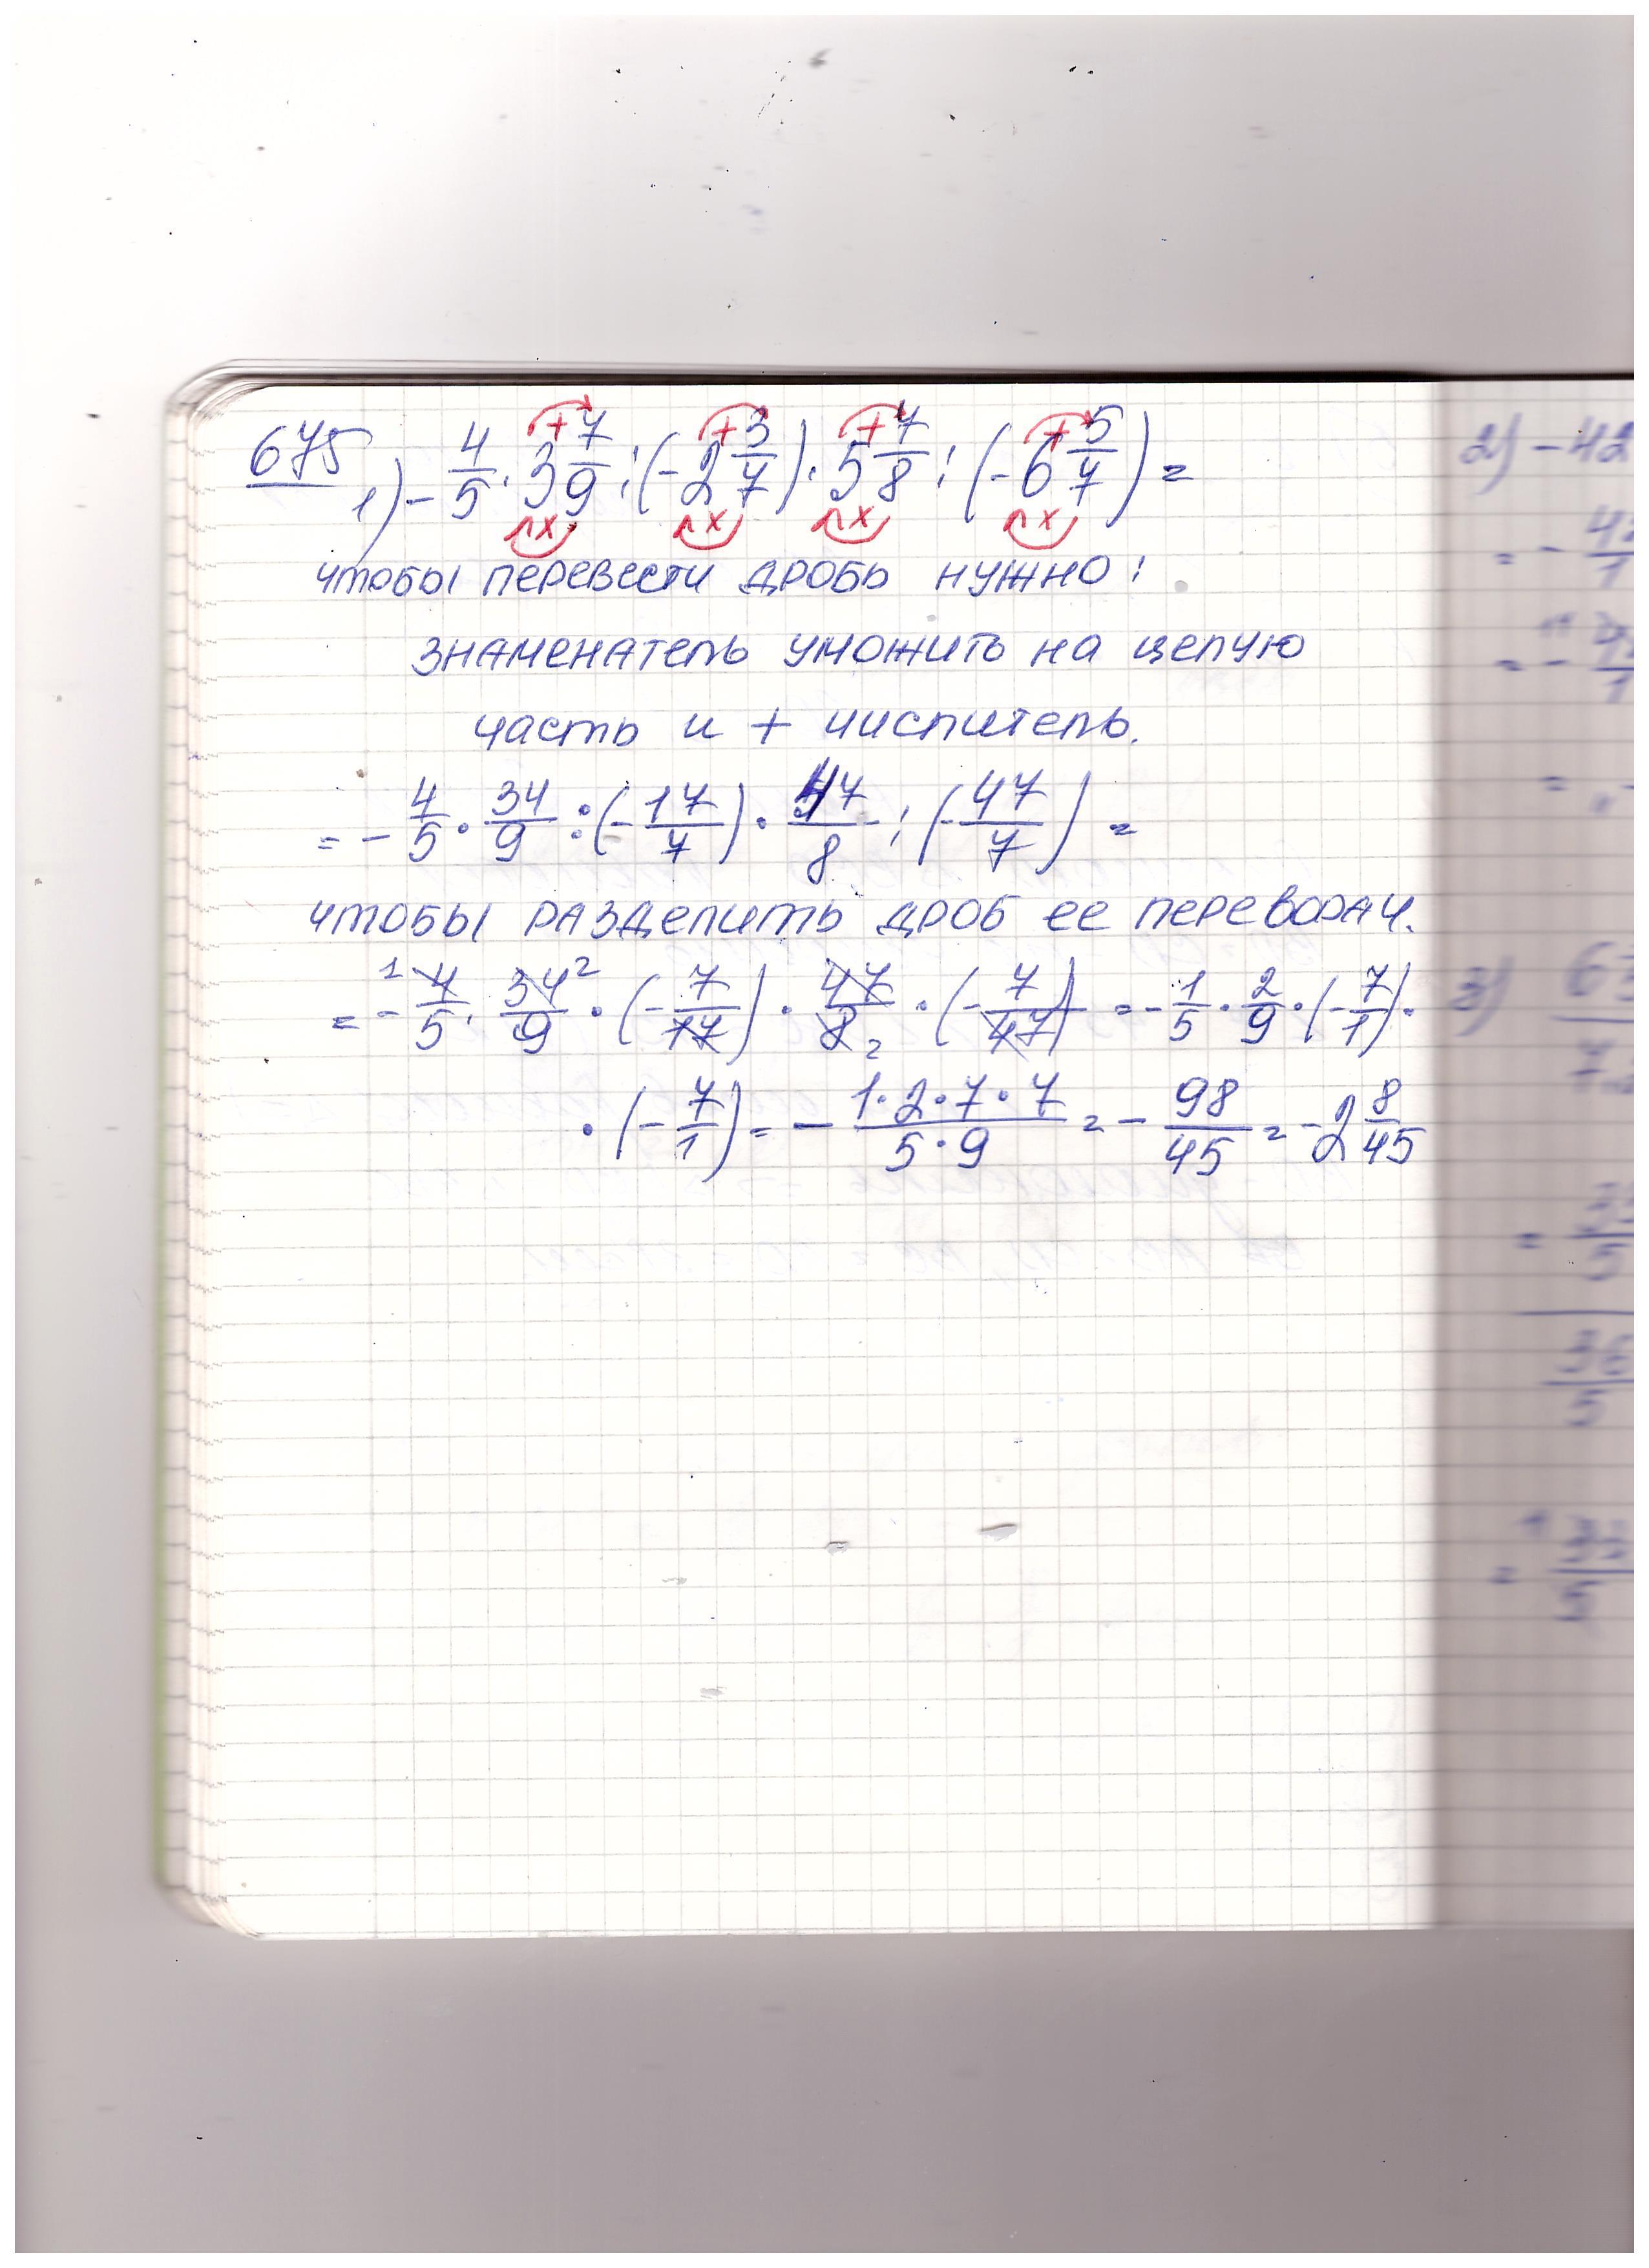 675 1) - 4/5 · 3 7/9 : (- 2 3/7) · 5 7/8 : (- 6 5/7) =
чтобы перевести дробь нужно:
знаменатель уможить на целую
часть и + числитель.
= - 4/5 · 34/9 : (- 17/7) · 47/8 : (- 47/7) =
чтобы разделить дроб ее переворач.
= - 4/5 · 34/9 · (- 7/17) · 47/8 · (- 7/47) = - 1/5 · 2/9 · (- 7/1) ·
· (- 7/1) = - 1·2·7·7/5·9 = - 98/45 = - 2 8/45
2) - 42
3)